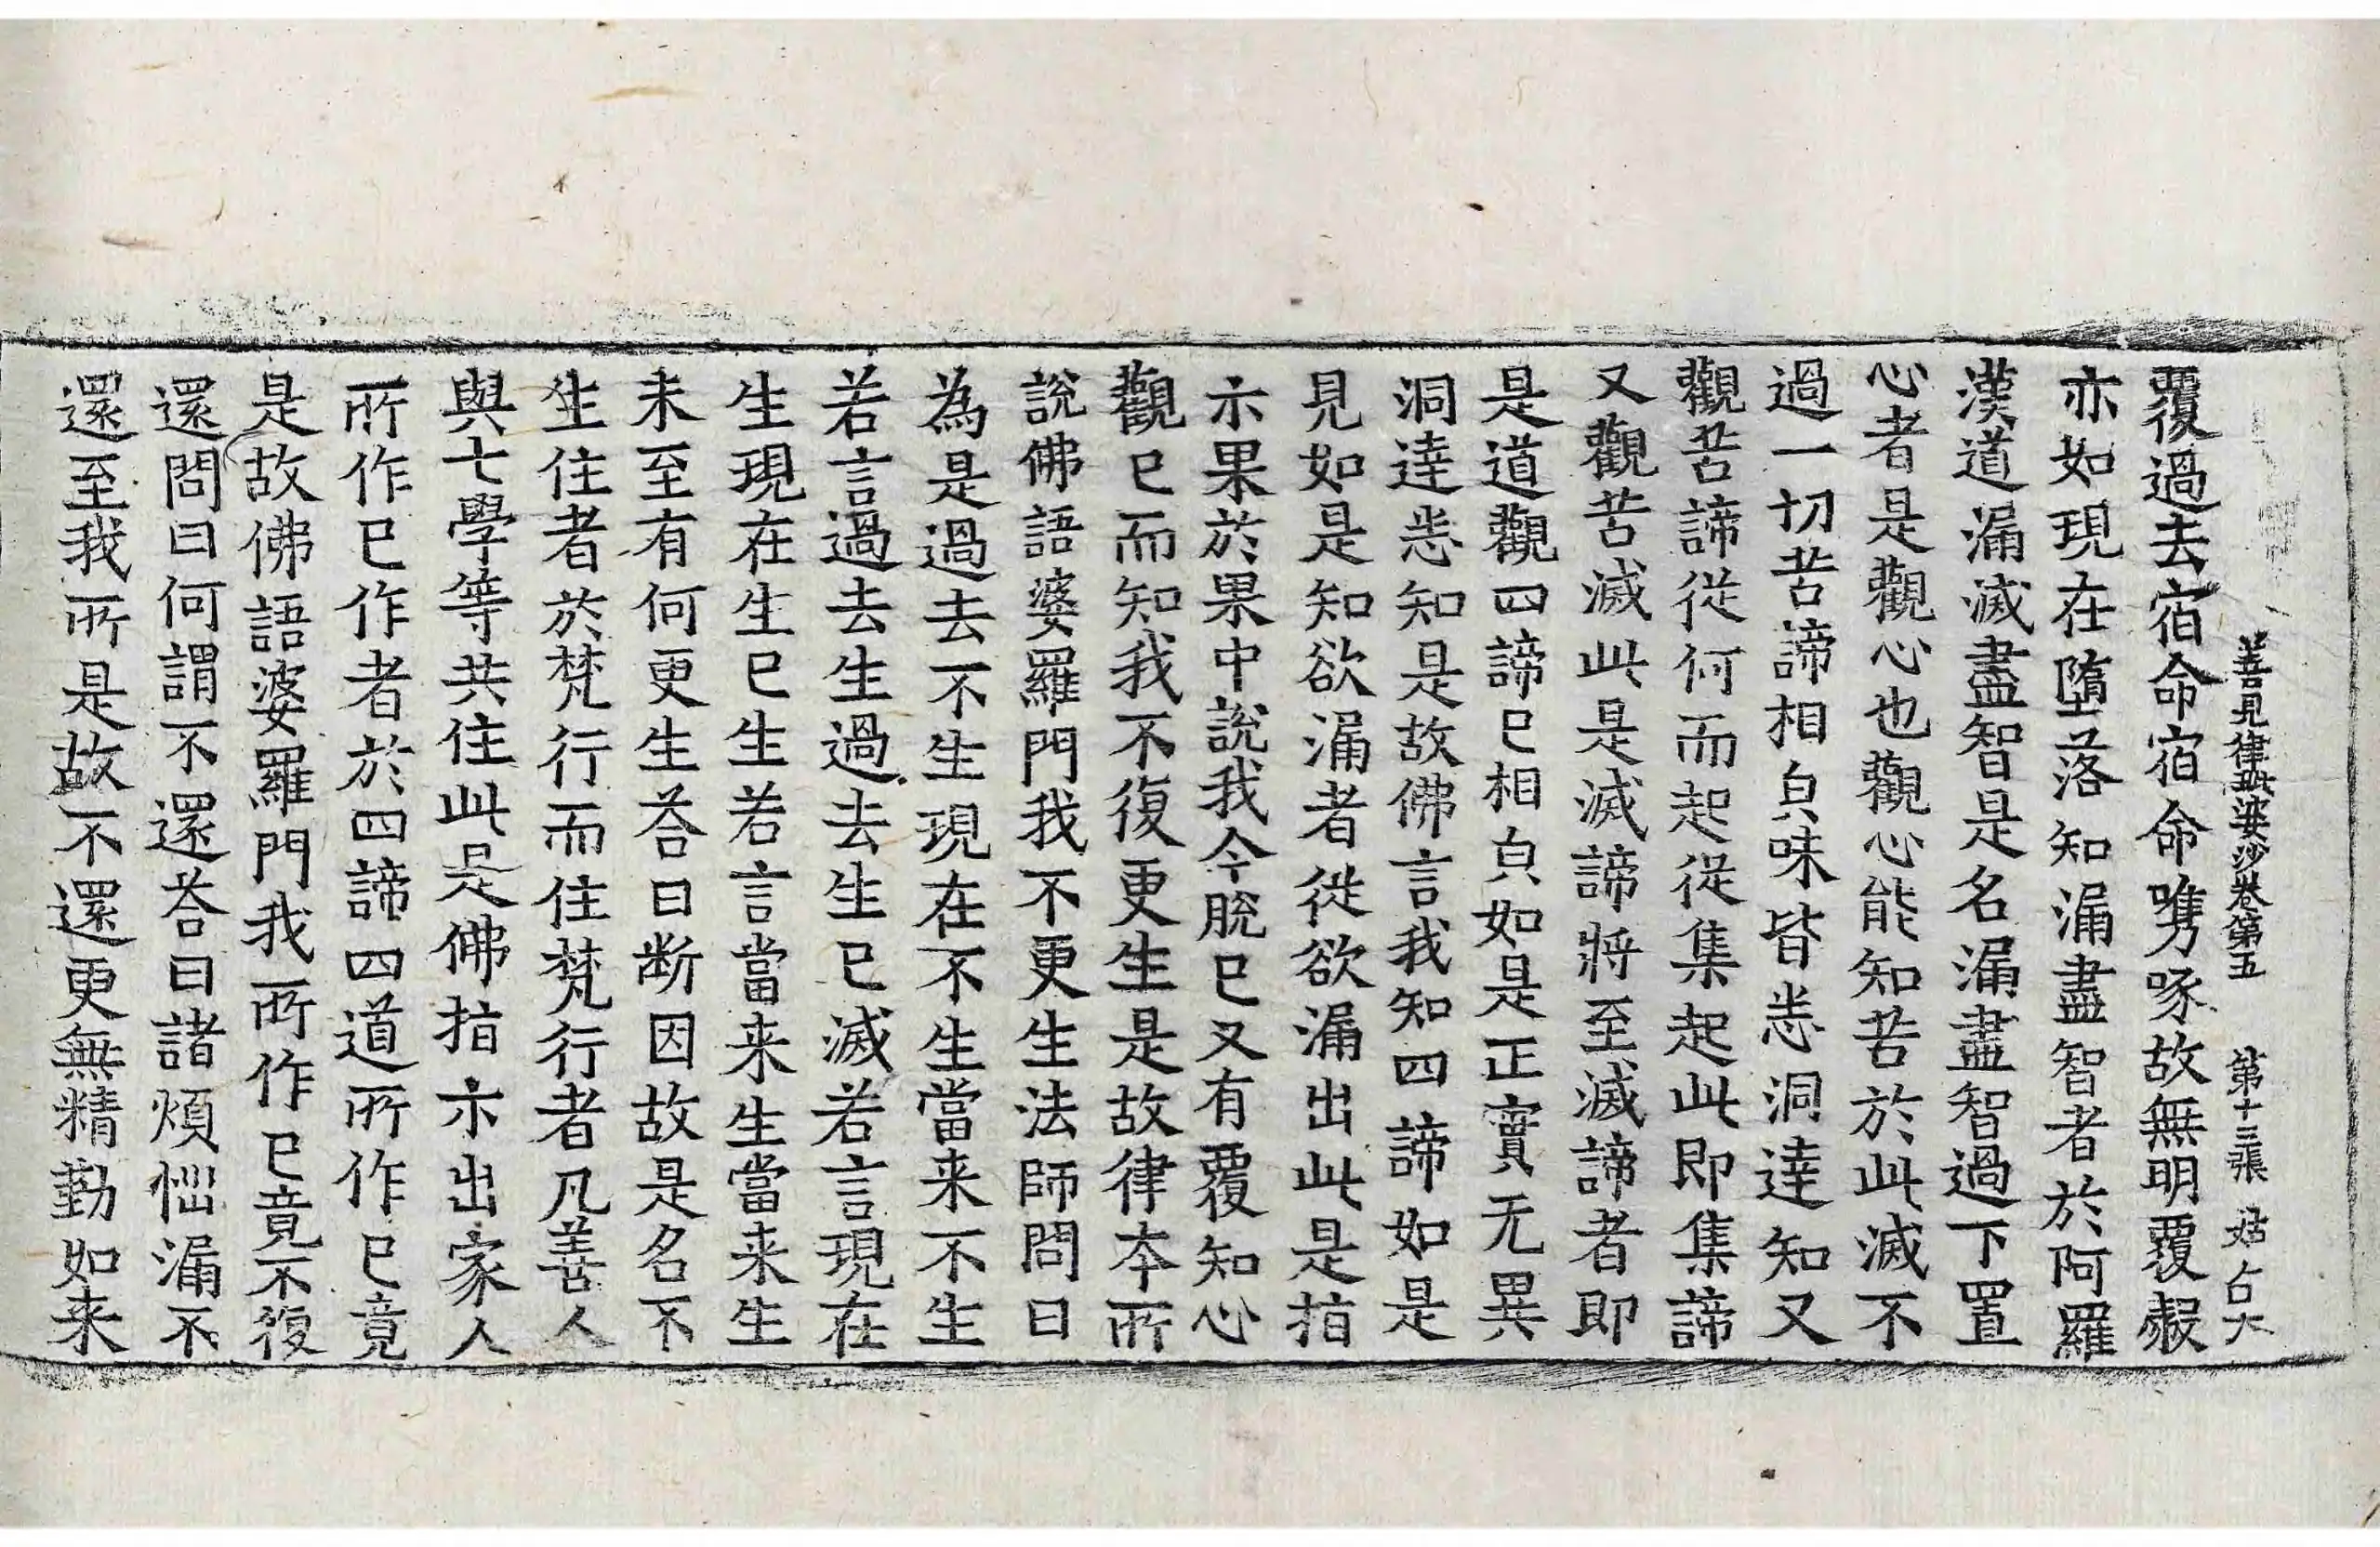 善見律毗婆沙卷第五 第十三張 姑
覆過去宿命宿命㗱啄故無明覆㲉
亦如現在墮落知漏盡智者於阿羅
漢道漏滅盡智是名漏盡智過下置
心者是觀心也觀心能知苦於此滅不
過一切苦諦相㒵味皆悉洞達知又
觀苦諦從何而起從集起此即集諦
又觀苦滅此是滅滅諦將至滅諦者即
是道觀四諦已相㒵如是正實无異
洞達悉知是故佛言我知四諦如是
見如是知欲漏者從欲漏出此是指
示果於果中說我今脫已又有覆知心
觀已而知我不復更生是故律本所
說佛語婆羅門我不更生法師問曰
為是過去不生現在不生當来不生
若言過去生過去生已滅若言現在
生現在生已生若言當来生當来生
未至有何更生荅曰断因故是名不
生住者於梵行而住梵行者凡善人
與七學等共住此是佛指示出家人
所作已作者於四諦四道所作已竟
是故佛語婆羅門我所作已竟不復
還問曰何謂不還荅曰諸煩惱漏不
還至我所是故不還更無精勤如来